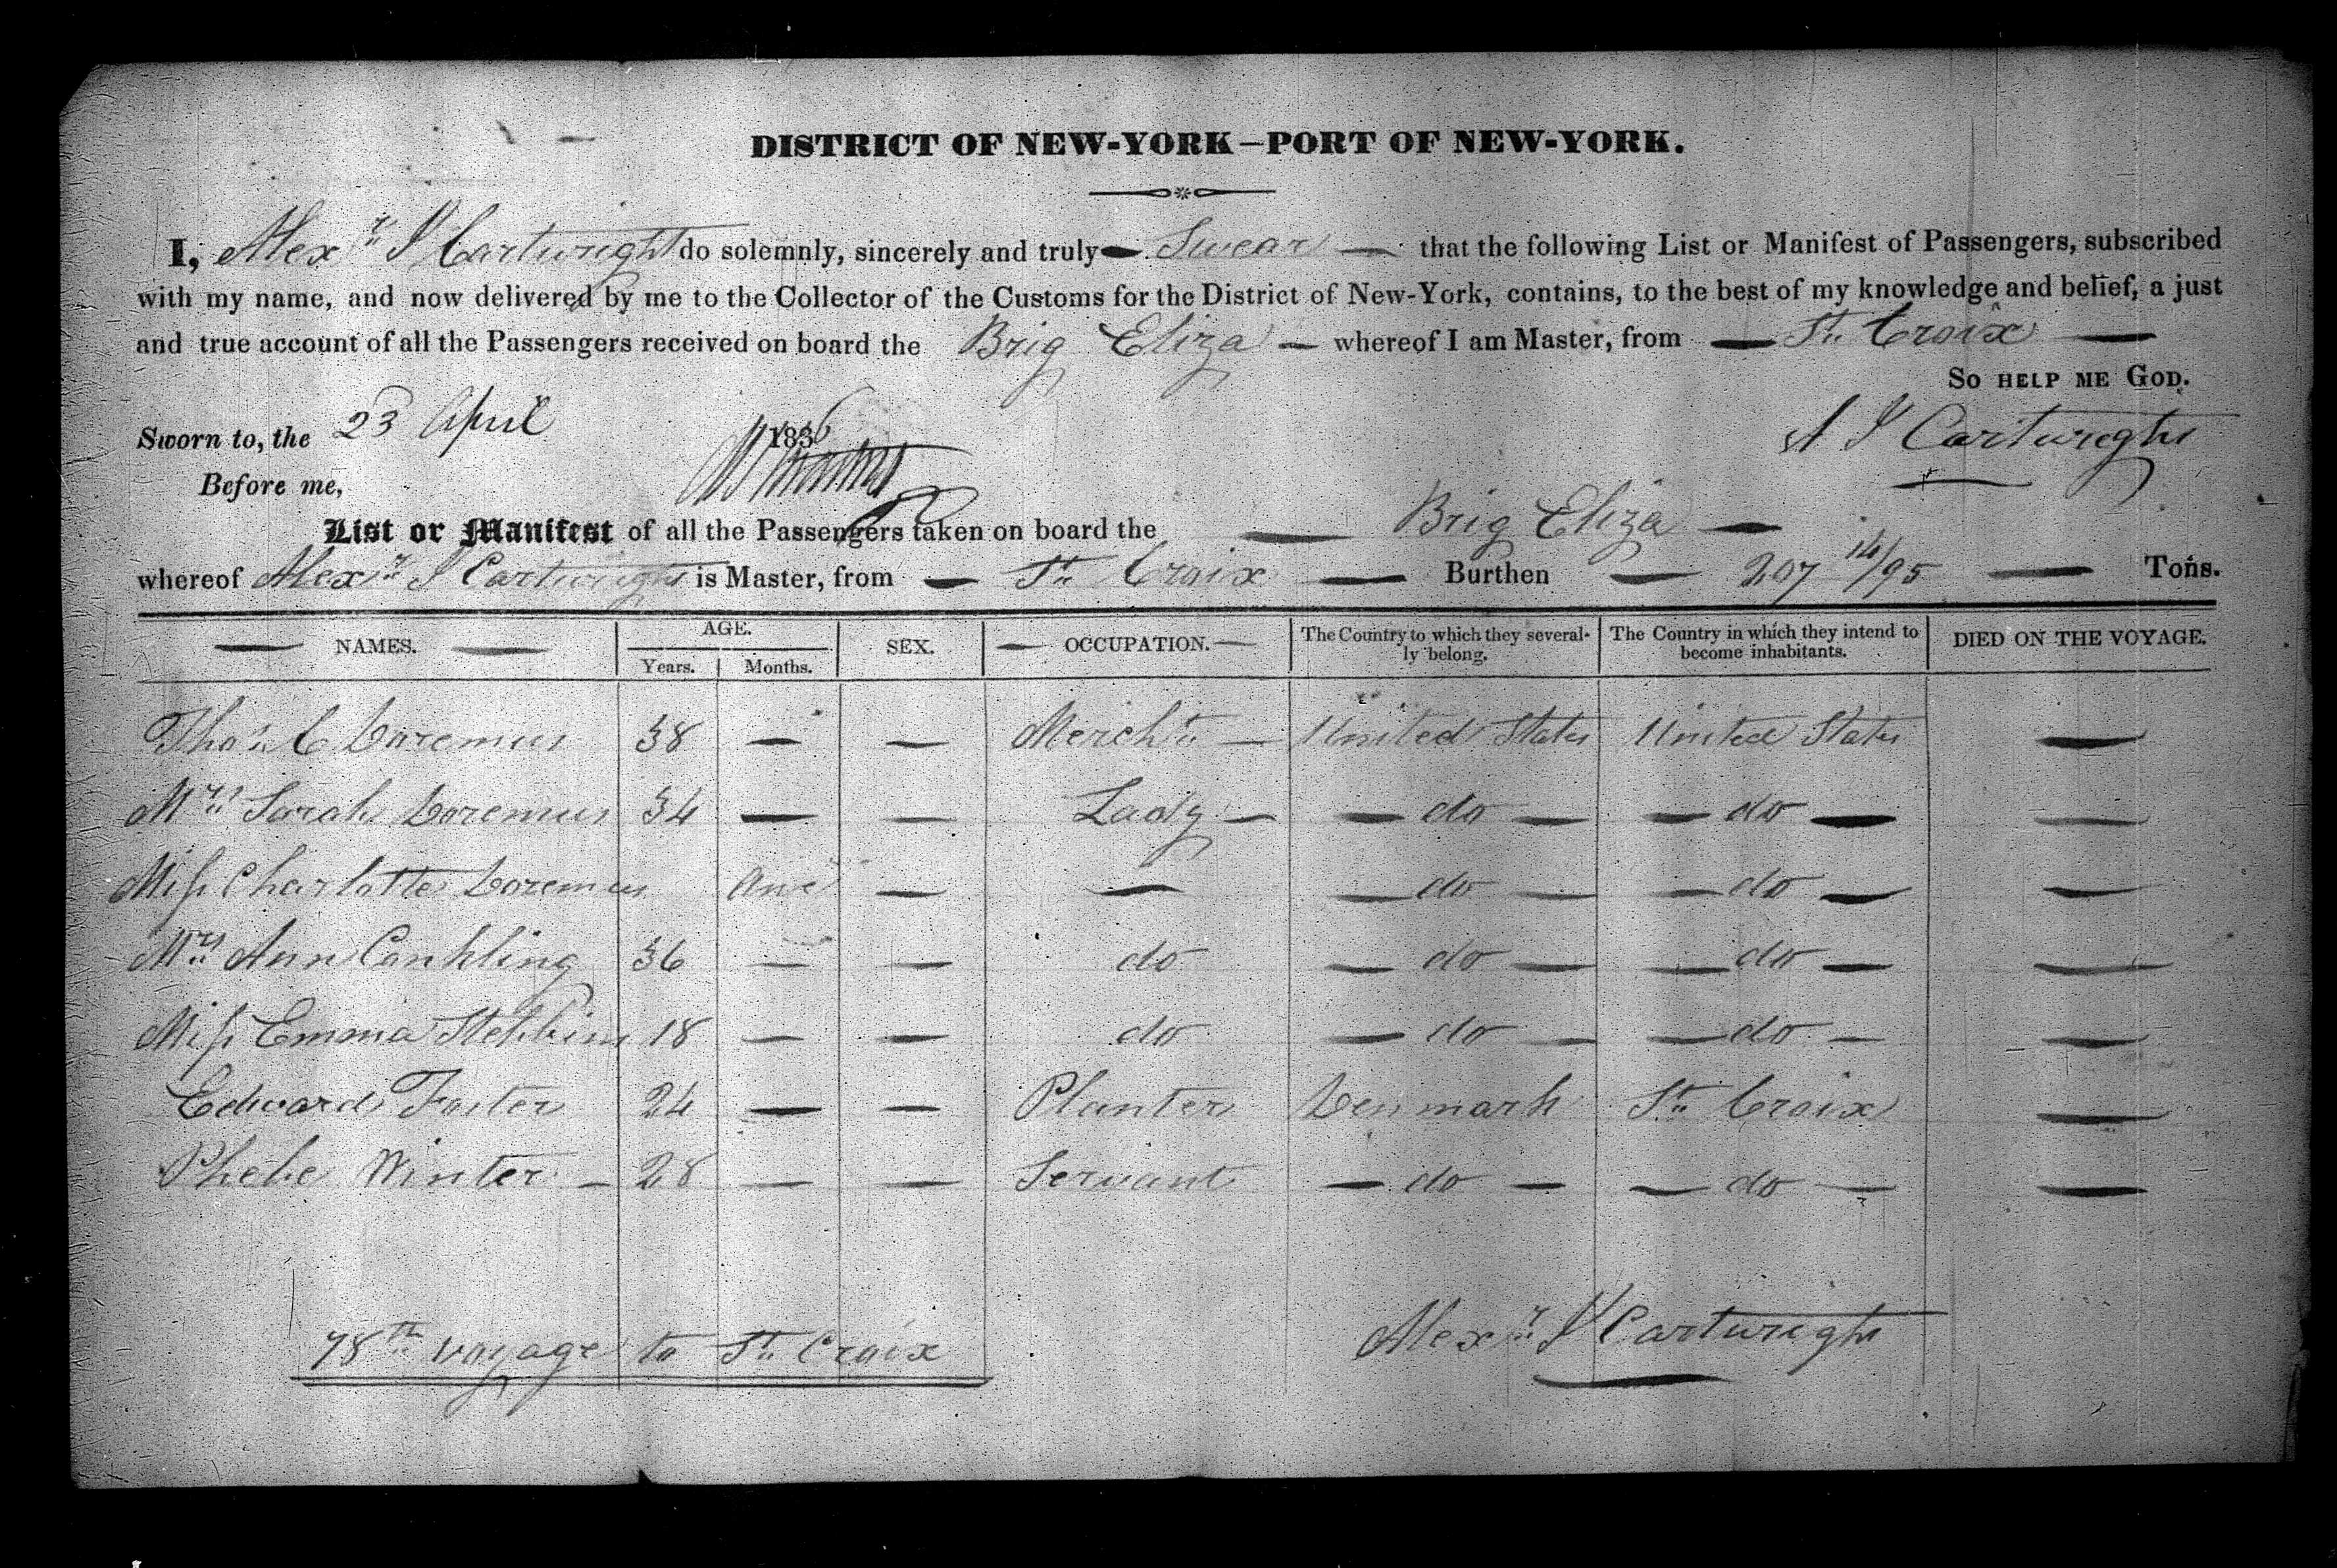 DISTRICT OF NEW-YORK—PORT OF NEW-YORK.
I, Alexr J Cartwright do solemnly, sincerely and truly — Swear — that the following List or Manifest of Passengers, subscribed
with my name, and now delivered by me to the Collector of the Customs for the District of New-York, contains, to the best of my knowledge and belief, a just
and true account of all the Passengers received on board the Brig Eliza — whereof I am Master, from — St Croix —
So help me God.
Sworn to, the 23 April 1836
A J Cartwright
Before me,
List or Manifest of all the Passengers taken on board the — Brig Eliza —
whereof Alexr J Cartwright is Master, from — St Croix — Burthen — 207 14/95 — Tons.
— NAMES. — AGE. Years. Months. SEX. — OCCUPATION. — The Country to which they severally belong. The Country in which they intend to become inhabitants. DIED ON THE VOYAGE.
Thos C Doremus 38 — — Mercht — United States United States —
Mrs Sarah Doremus 34 — — Lady — — do — — do — —
Miss Charlotte Doremus — — — do — — do — —
Mrs Ann Conkling 36 — — do — do — — do — —
Miss Emma Stebbins 18 — — do — do — — do — —
Edward Foster 24 — — Planter Denmark St Croix —
Phebe Winter — 28 — — Servant — do — — do — —
78th voyage to St Croix
Alexr J Cartwright